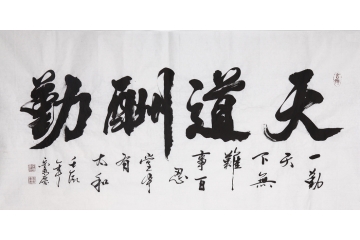 天道酬勤
一勤
天
下無
難
事百
忍
堂中
有
太和